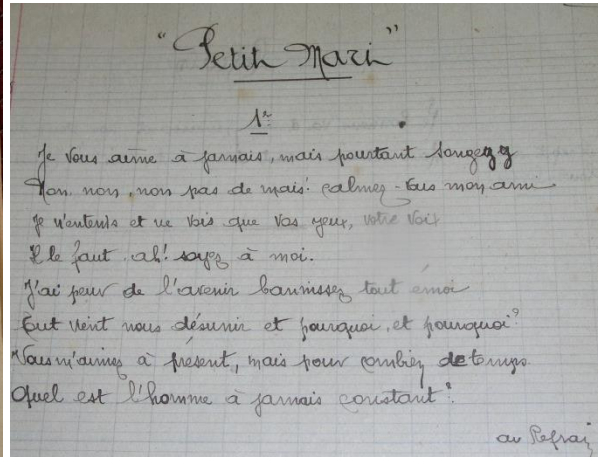 "Petit Mari"
1er
Je vous aime à jamais, mais pourtant songez y
Non, non, non pas de mais! calmez-vous mon ami
Je n'entends et ne vois que vos yeux, votre voix
Il le faut ah! soyez à moi.
J'ai peur de l'avenir bannissez tout émoi
tout vient nous désunir et pourquoi, et pourquoi?
Vous m'aimez à présent, mais pour combien de temps
Quel est l'homme à jamais constant?
au Refrain